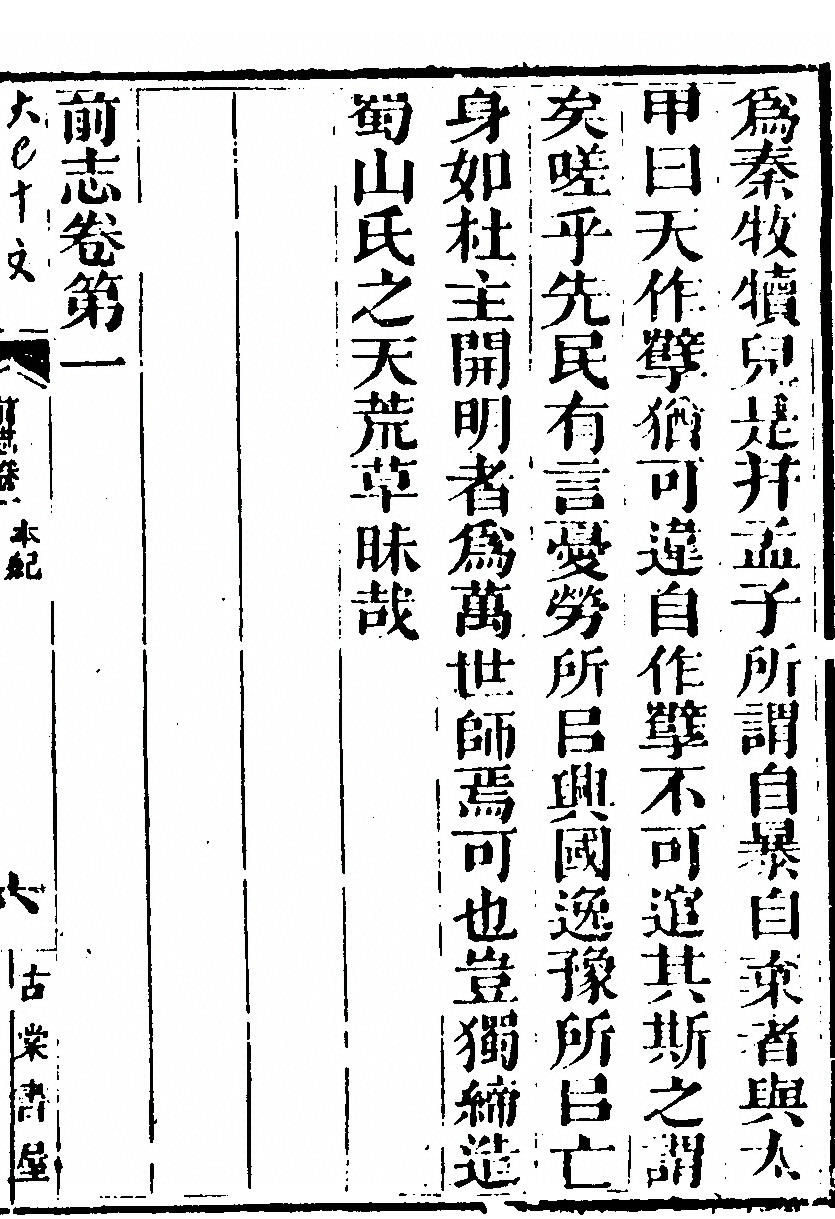 爲秦牧犢兒是幷孟子所謂自暴自棄者與太
甲曰天作孽猶可違自作孽不可逭其斯之謂
矣嗟乎先民有言憂勞所㠯興國逸豫所㠯亡
身如杜主開明者爲萬世師焉可也豈獨締造
蜀山氏之天荒草昧哉
前志卷第一
大乀十文
前志卷一 本紀
六
古棠書屋